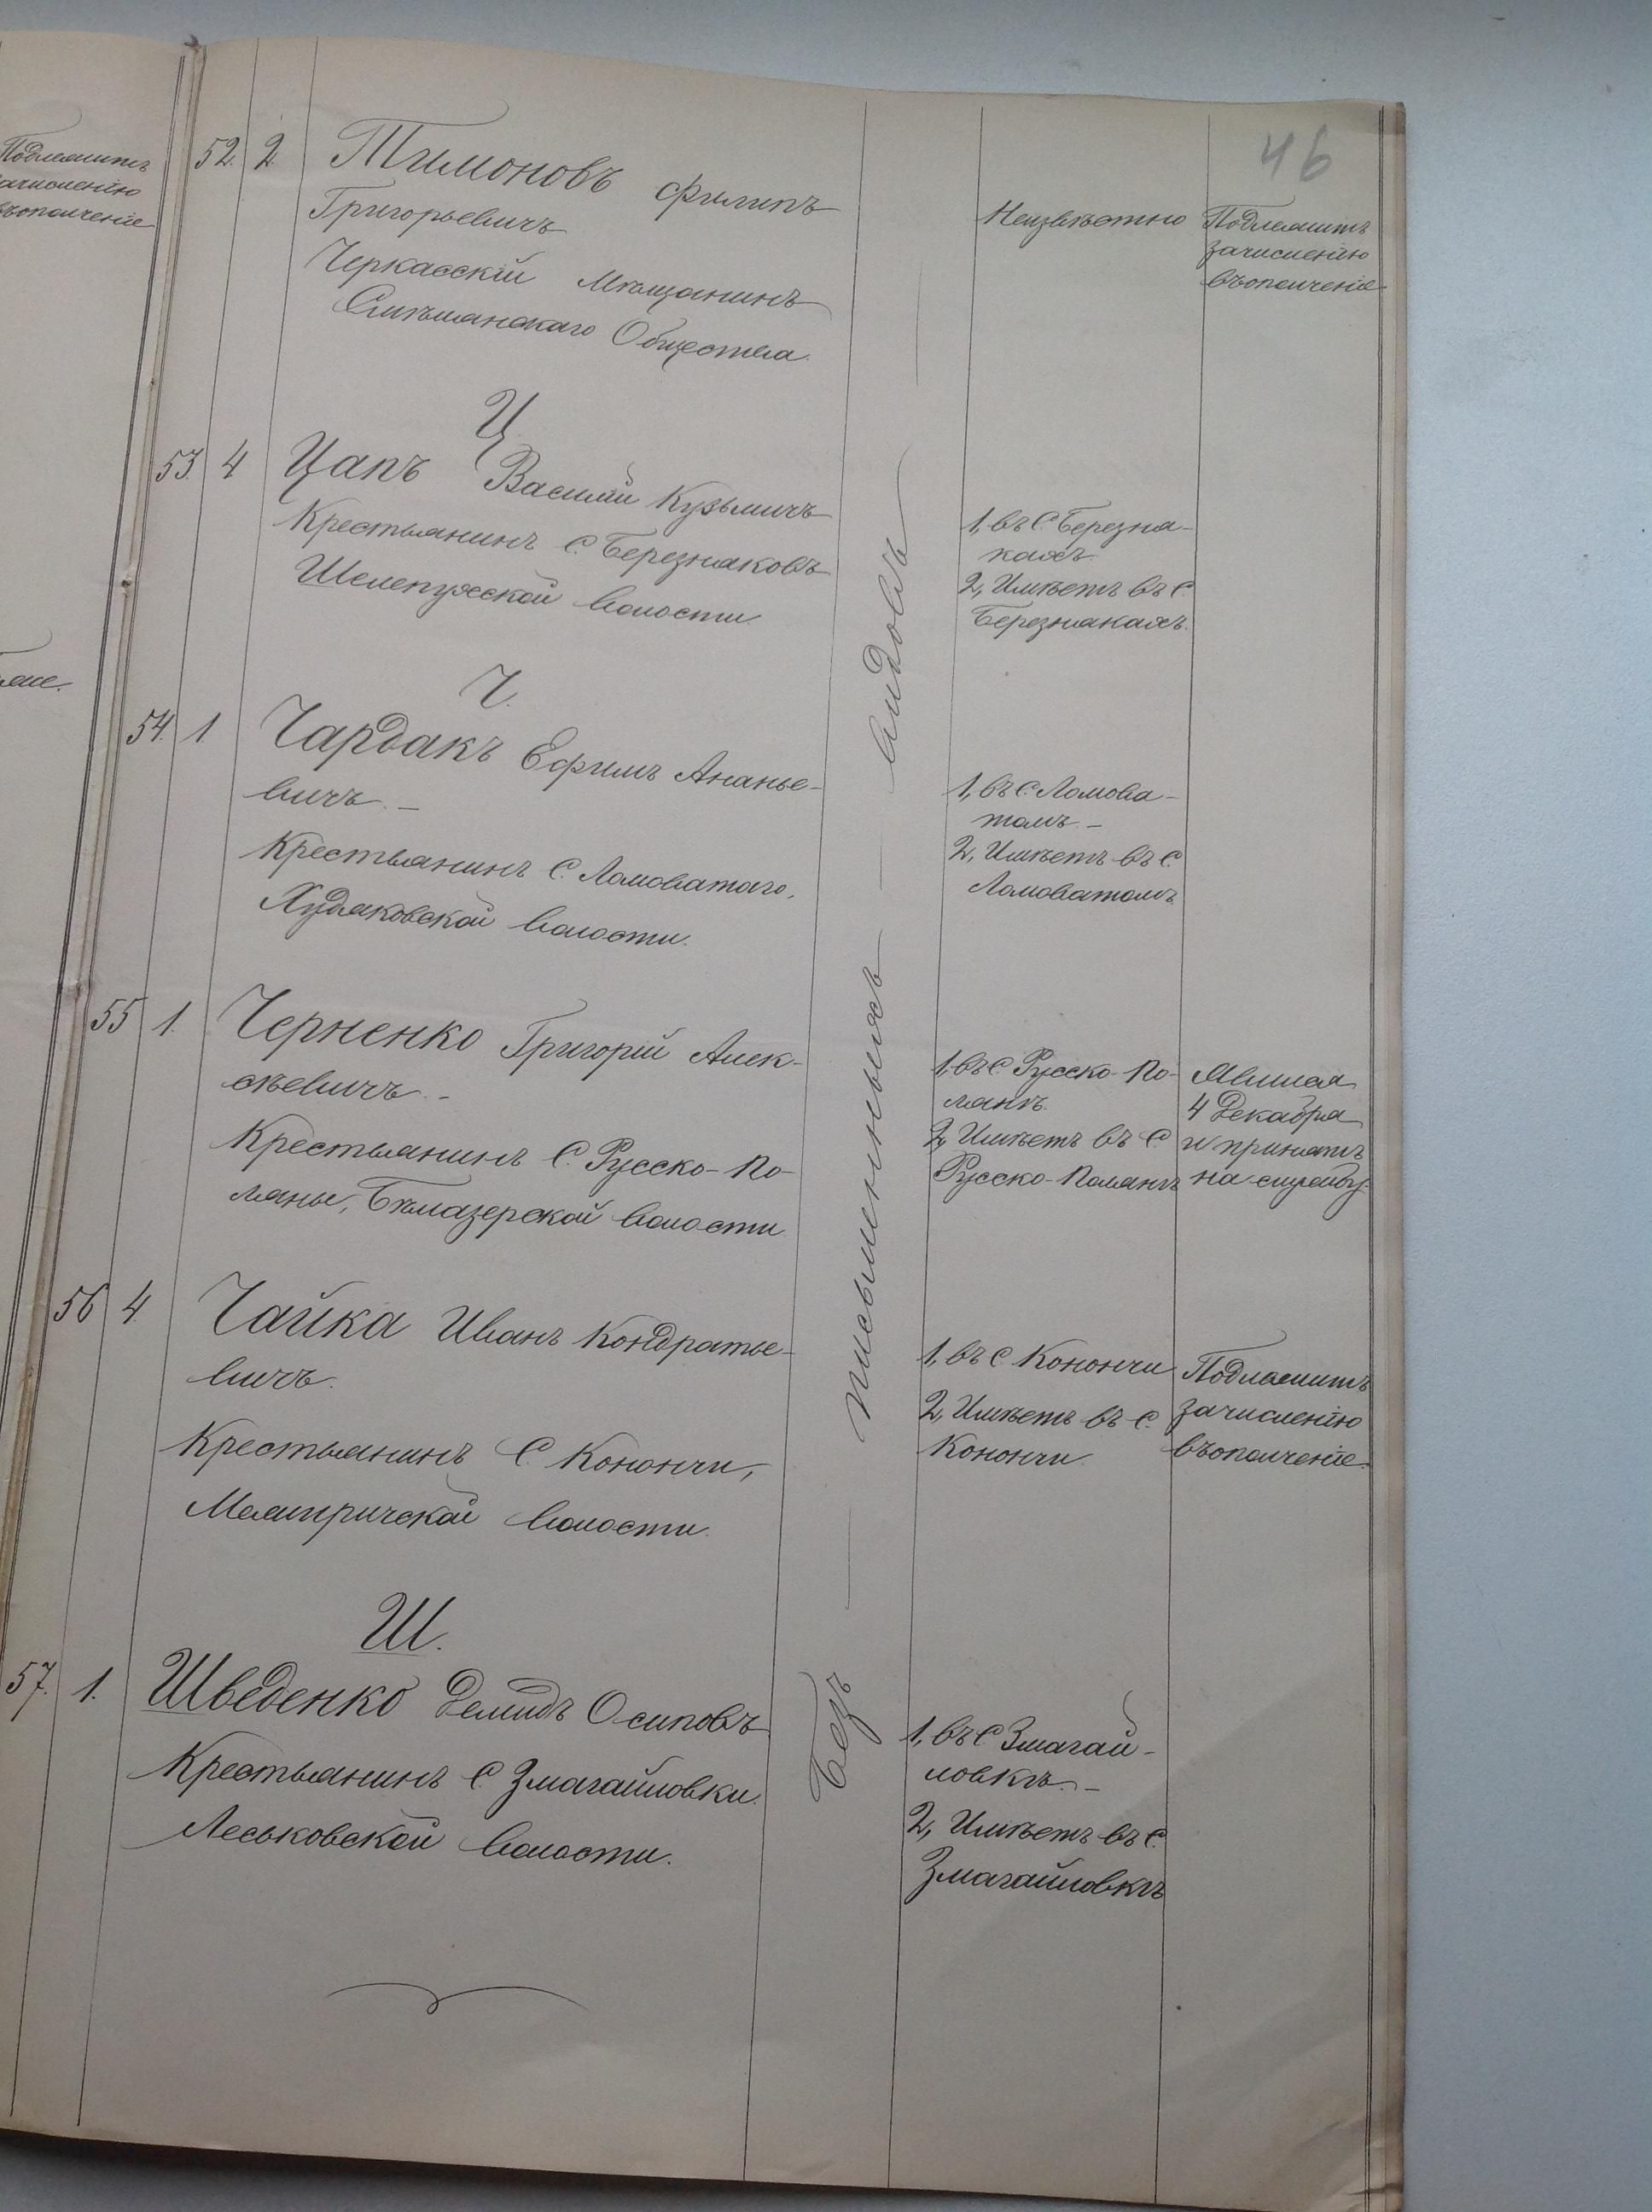 46
Подлежитъ
зачисленію
въ ополченіе
52 2 Тимоновъ Филипъ
Григорьевичъ
Черкасскій Мѣщанинъ
Смѣлянскаго Общества.
Неизвѣстно
Подлежитъ
зачисленію
въ ополченіе
Ц
53. 4 Цапъ Василій Кузьмичъ
Крестьянинъ С. Березняковъ
Шелепухской волости
1, въ С. Березня-
кахъ.
2, Имѣетъ въ С.
Березнякахъ.
Ч.
54. 1 Чардакъ Ефимъ Ананье-
вичъ. –
Крестьянинъ С. Ломоватаго,
Худяковской волости.
1, въ С. Ломова-
томъ –
2, Имѣетъ въ С.
Ломоватомъ
55 1. Черненко Григорій Алек-
сѣевичъ. –
Крестьянинъ С. Русско-По-
ляны, Бѣлазерской волости
1, въ С. Русско-По-
лянѣ.
2, Имѣетъ въ С
Русско-Полянѣ
Явился
4 Декабря
и принятъ
на службу
56 4 Чайка Иванъ Кондратье-
вичъ.
Крестьянинъ С. Конончи,
Мельничской волости.
1, въ С Конончи
2, Имѣетъ въ С.
Конончи
Подлежитъ
зачисленію
въ ополченіе.
Ш.
57. 1. Шведенко Демидъ Осиповъ
Крестьянинъ С. Змагайловки.
Леськовской волости.
1, въ С Змагай-
ловкѣ. –
2, Имѣетъ въ С.
Змагайловкѣ
Безъ — письменныхъ — видовъ —